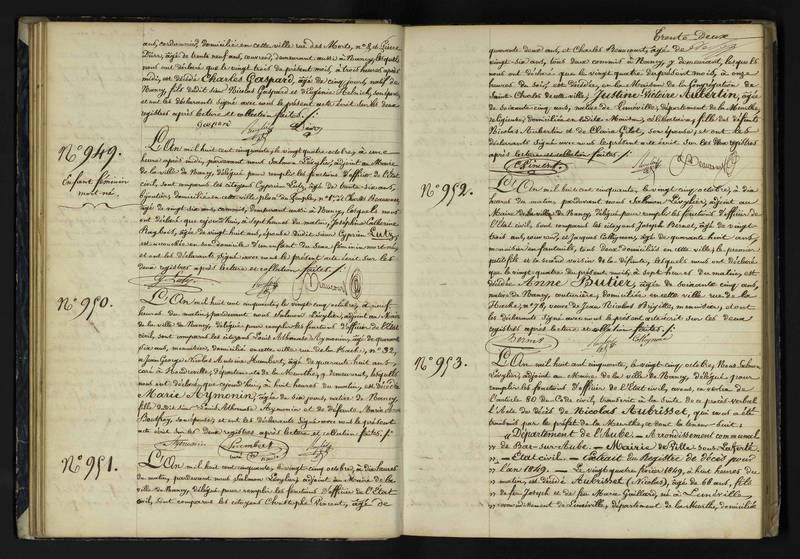 ans, cordonnier, domicilié en cette ville rue des Morts, n° 8, et Pierre
âgé de trente neuf ans, courrier, demeurant aussi à Nancy, lesquels
nous ont déclaré que le vingt trois du présent mois, à trois heures après
midi, est décédé Charles Gaspard, âgé de cinq jours, natif de
Nancy, fils dudit sieur Nicolas Gaspard et d'Eugénie son épouse,
et ont les déclarants signé avec nous le présent acte écrit sur les deux
registres après lecture et collation faites.
Gaspard
N° 949.
Enfant féminin
mort-né.
L'An mil huit cent cinquante, le vingt quatre octobre, à une
heure après midi, pardevant nous Salmon Lévylier, adjoint au Maire
de la ville de Nancy, délégué pour remplir les fonctions d'officier de l'Etat
civil, sont comparus les citoyens Cyprien Lutz, âgé de trente six ans
bijoutier, domicilié en cette ville place du Peuple, n° et Charles Beaucourt,
âgé de vingt-six ans, commis, demeurant aussi à Nancy, lesquels nous
ont déclaré que aujourd'hui, à sept heures du matin, Joséphine Catherine
âgée de vingt huit ans, épouse dudit sieur Cyprien Lutz,
est accouchée en son domicile d'un enfant du sexe féminin mort-né,
et ont les déclarants signé avec nous le présent acte écrit sur les
deux registres après lecture et collation faites.
C. Lutz Beaucourt
N° 950.
L'An mil huit cent cinquante, le vingt cinq octobre, à neuf
heures du matin, pardevant nous Salmon Lévylier, adjoint au Maire
de la ville de Nancy, délégué pour remplir les fonctions d'officier de l'Etat
civil, sont comparus les citoyens Louis Athanase Aymonin, âgé de quarante
six ans, menuisier, domicilié en cette ville rue de la Hache, n° 32,
et Jean Georges Nicolas Antoine Humbert, âgé de quarante huit ans,
curé à département de la Meurthe, y demeurant, lesquels
nous ont déclaré, que aujourd'hui, à huit heures du matin, est décédée
Marie Aymonin, âgée de six jours, native de Nancy,
fille dudit sieur Louis Athanase Aymonin et de défunte Marie Anne
son épouse, et ont les déclarants signé avec nous le présent
acte écrit sur les deux registres après lecture et collation faites.
Aymonin Humbert
N° 951.
L'An mil huit cent cinquante, le vingt cinq octobre, à dix heures
du matin, pardevant nous Salmon Lévylier, adjoint au Maire de la
ville de Nancy, délégué pour remplir les fonctions d'officier de l'Etat
civil, sont comparus les citoyens Christophe Vincent, âgé de
Trente Deux
quarante deux ans, et Charles Beaucourt, âgé de
vingt-six ans, tous deux commis à Nancy, y demeurant, lesquels
nous ont déclaré que le vingt quatre du présent mois, à onze
heures du soir, est décédée, en la Maison de la Congrégation de
Saint Charles de cette ville, Justine Victoire Aubertin, âgée
de soixante cinq ans, native de Lunéville, département de la Meurthe,
religieuse, domiciliée en ladite Maison, célibataire, fille des défunts
Nicolas Aubertin et de Claire Gilot, son épouse; et ont les
déclarants signé avec nous le présent acte écrit sur les deux registres
après lecture et collation faites.
Vincent Beaucourt
N° 952.
L'An mil huit cent cinquante, le vingt cinq octobre, à dix
heures du matin, pardevant nous Salmon Lévylier, adjoint au
Maire de la ville de Nancy, délégué pour remplir les fonctions d'officier de
l'Etat civil, sont comparus les citoyens Joseph âgé de vingt-
trois ans, et Jacques âgé de quarante huit ans,
tous deux domiciliés en cette ville; le premier
petit fils et le second voisin de la défunte, lesquels nous ont déclaré
que le vingt quatre du présent mois, à sept heures du matin, est
décédée Anne Butier, âgée de soixante cinq ans,
native de Nancy, couturière, domiciliée en cette ville rue de la
Hache, n° 78, veuve de Jean Nicolas menuisier; et ont
les déclarants signé avec nous le présent acte écrit sur les deux
registres après lecture et collation faites.
N° 953.
L'An mil huit cent cinquante, le vingt cinq octobre, Nous Salmon
Lévylier, adjoint au Maire de la ville de Nancy, délégué pour
remplir les fonctions d'officier de l'Etat civil, avons, en vertu de
l'article 80 du Code civil, transcrit à la suite de ce procès-verbal
l'Acte de décès de Nicolas Aubrisset, qui nous a été
transmis par le préfet de la Meurthe, et dont la teneur suit:
« Département de l'Aube. — Arrondissement communal
» de Bar-sur-Aube — Mairie de Ville sous Laferté
» — Etat civil. — Extrait du Registre de décès pour
» l'an 1849. — Le vingt quatre février 1849, à huit heures du
» matin, est décédé Aubrisset (Nicolas), âgé de 68 ans, fils
» de feu Joseph et de feu Marie Guillard, né à Lunéville
» arrondissement de Lunéville, département de la Meurthe, domicilié